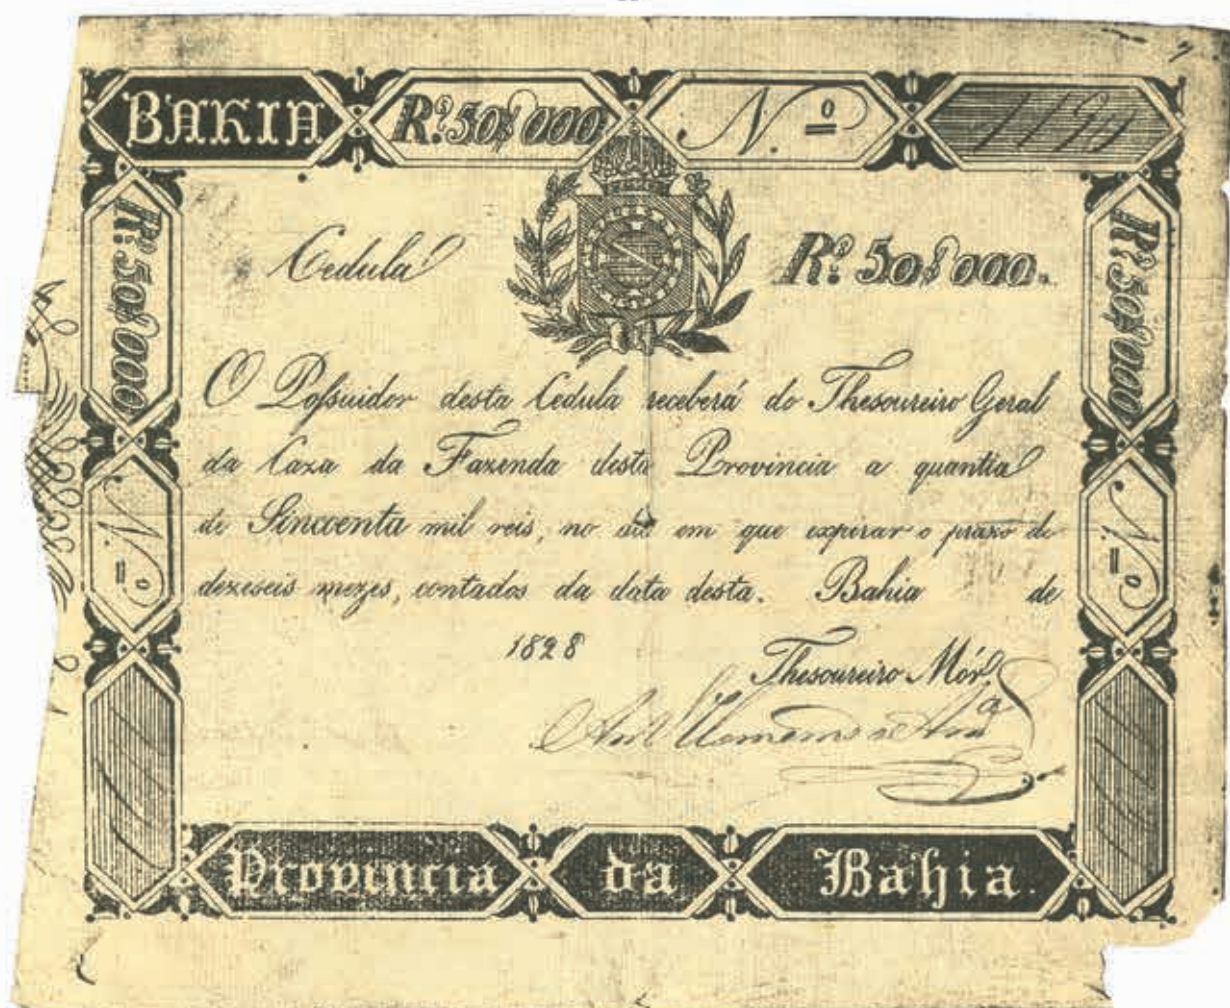 BAHIA Rˢ 50$000 N.º
Rˢ 50$000
Rˢ 50$000
Cedula Rˢ 50$000.
O Poſsuidor desta Cedula receberá do Thesoureiro Geral
da Caza da Fazenda desta Provincia a quantia
de Sincoenta mil reis, no dia em que expirar o prazo de
dezeseis mezes, contados da data desta. Bahia de
1828
Thesoureiro Mór
N.º
N.º
Provincia da Bahia.